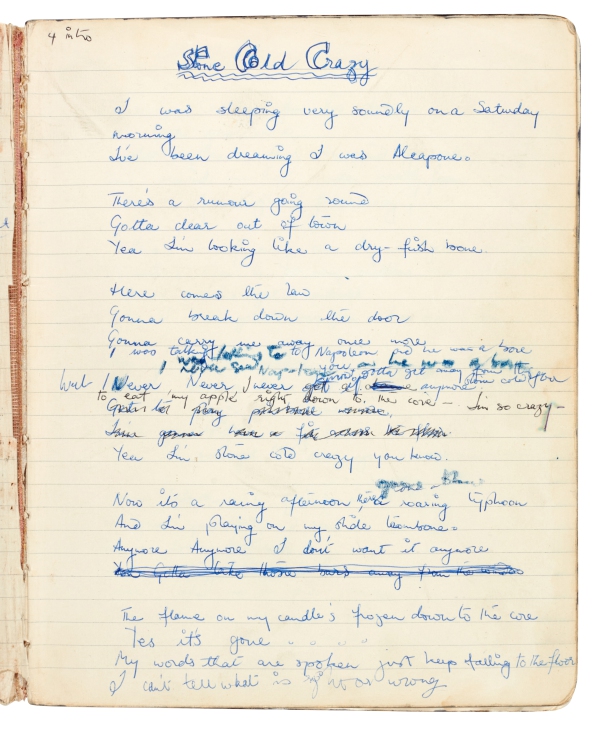 4 intro
Stone Cold Crazy
I was sleeping very soundly on a Saturday
morning
I've been dreaming I was Alcapone.
There's a rumour going round
Gotta clear out of town
Yea I'm looking like a dry-fish bone.
Here comes the law
Gonna break down the door
Gonna carry me away once more
I was talking to Napoleon and he was a bore
gotta get away from
but I Never Never I never get anymore stone cold floor
to eat my apple right down to the core - I'm so crazy -
Gotta play
Yea I'm stone cold crazy you know.
Now it's a rainy afternoon there's roaring typhoon
And I'm playing on my slide trombone.
Anymore Anymore I don't want it anymore
The flame on my candle's frozen down to the core
Yes it's gone " " " "
My words that are spoken just keep falling to the floor
I can't tell what is right or wrong